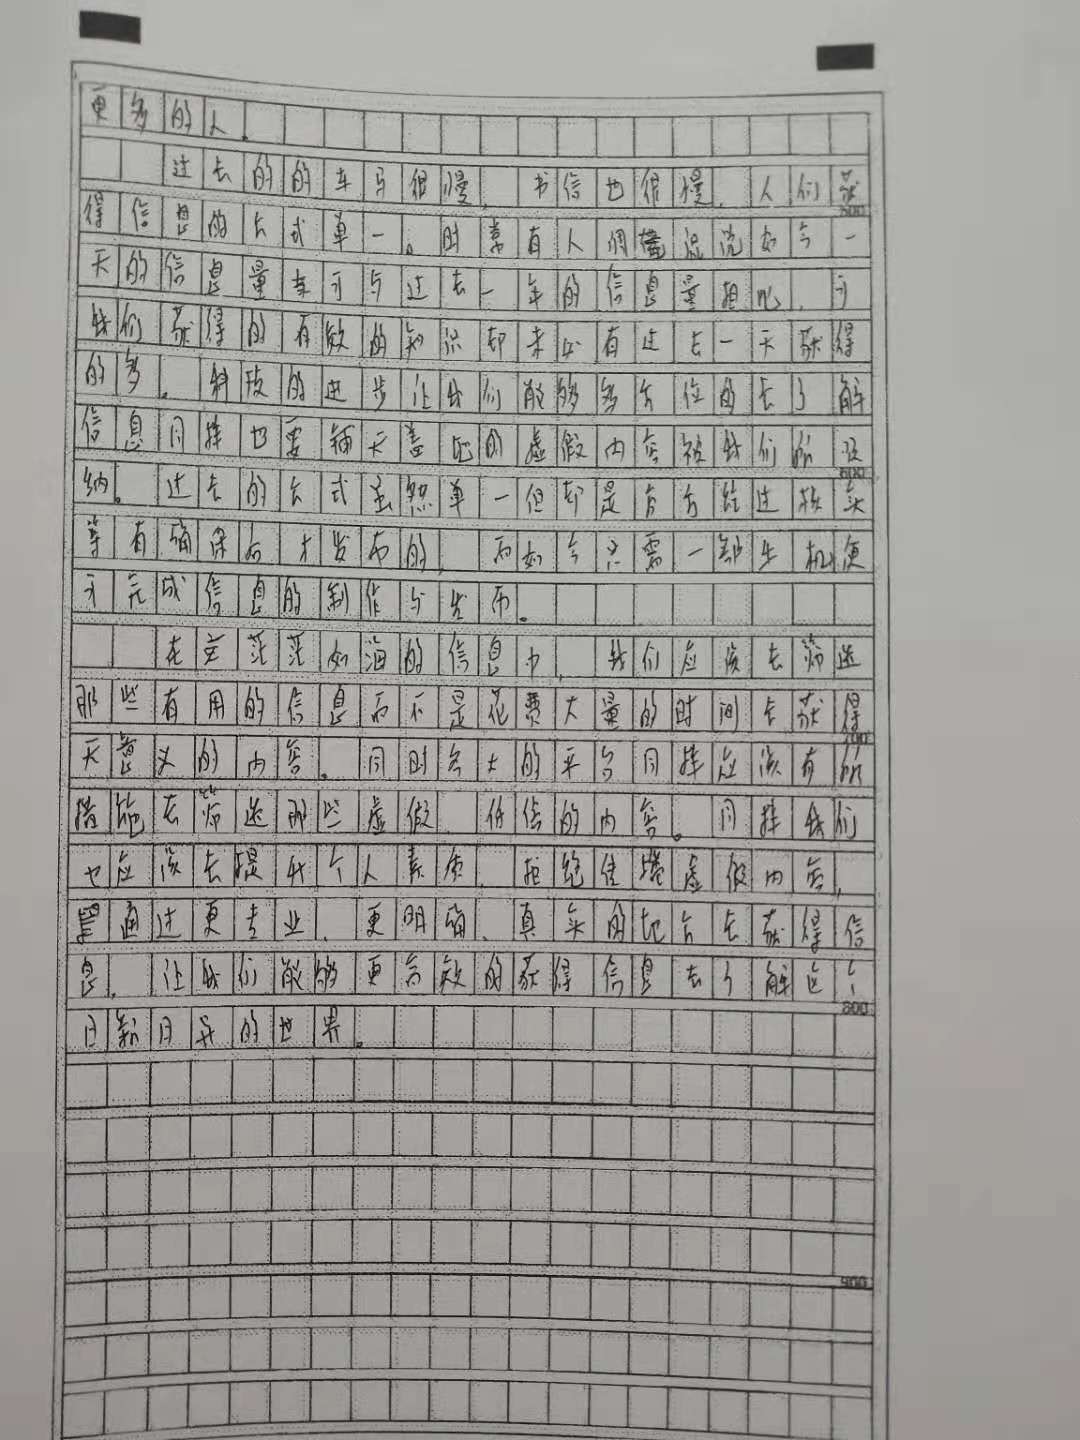 更多的人。
过去的的车马很慢，书信也很慢，人们获
500
得信息的方式单一。时常有人调 说如今一
天的信息量 可与过去一年的信息量相比，可
我们获得的有效的知识却未必有过去一天获得
的多。科技的进步让我们能够多方位的去了解
信息同样也要铺天盖地的虚假内容被我们所吸
600
纳。过去的方式虽然单一但却是官方经过核实
等有确保后才发布的，而如今只需一部手机便
可完成信息的制作与发布。
在 茫茫如海的信息中，我们应该去筛选
那些有用的信息而不是花费大量的时间去获得
700
无意义的内容。同时各大的平台同样应该有所
措施去筛选那些虚假、低俗的内容。同样我们
也应该去提 个人素质，拒绝传播虚假内容，
通过更专业、更明确、真实的地方去获得信
息，让我们能够更高效的获得信息去了解这个
800
日新日异的世界。
900